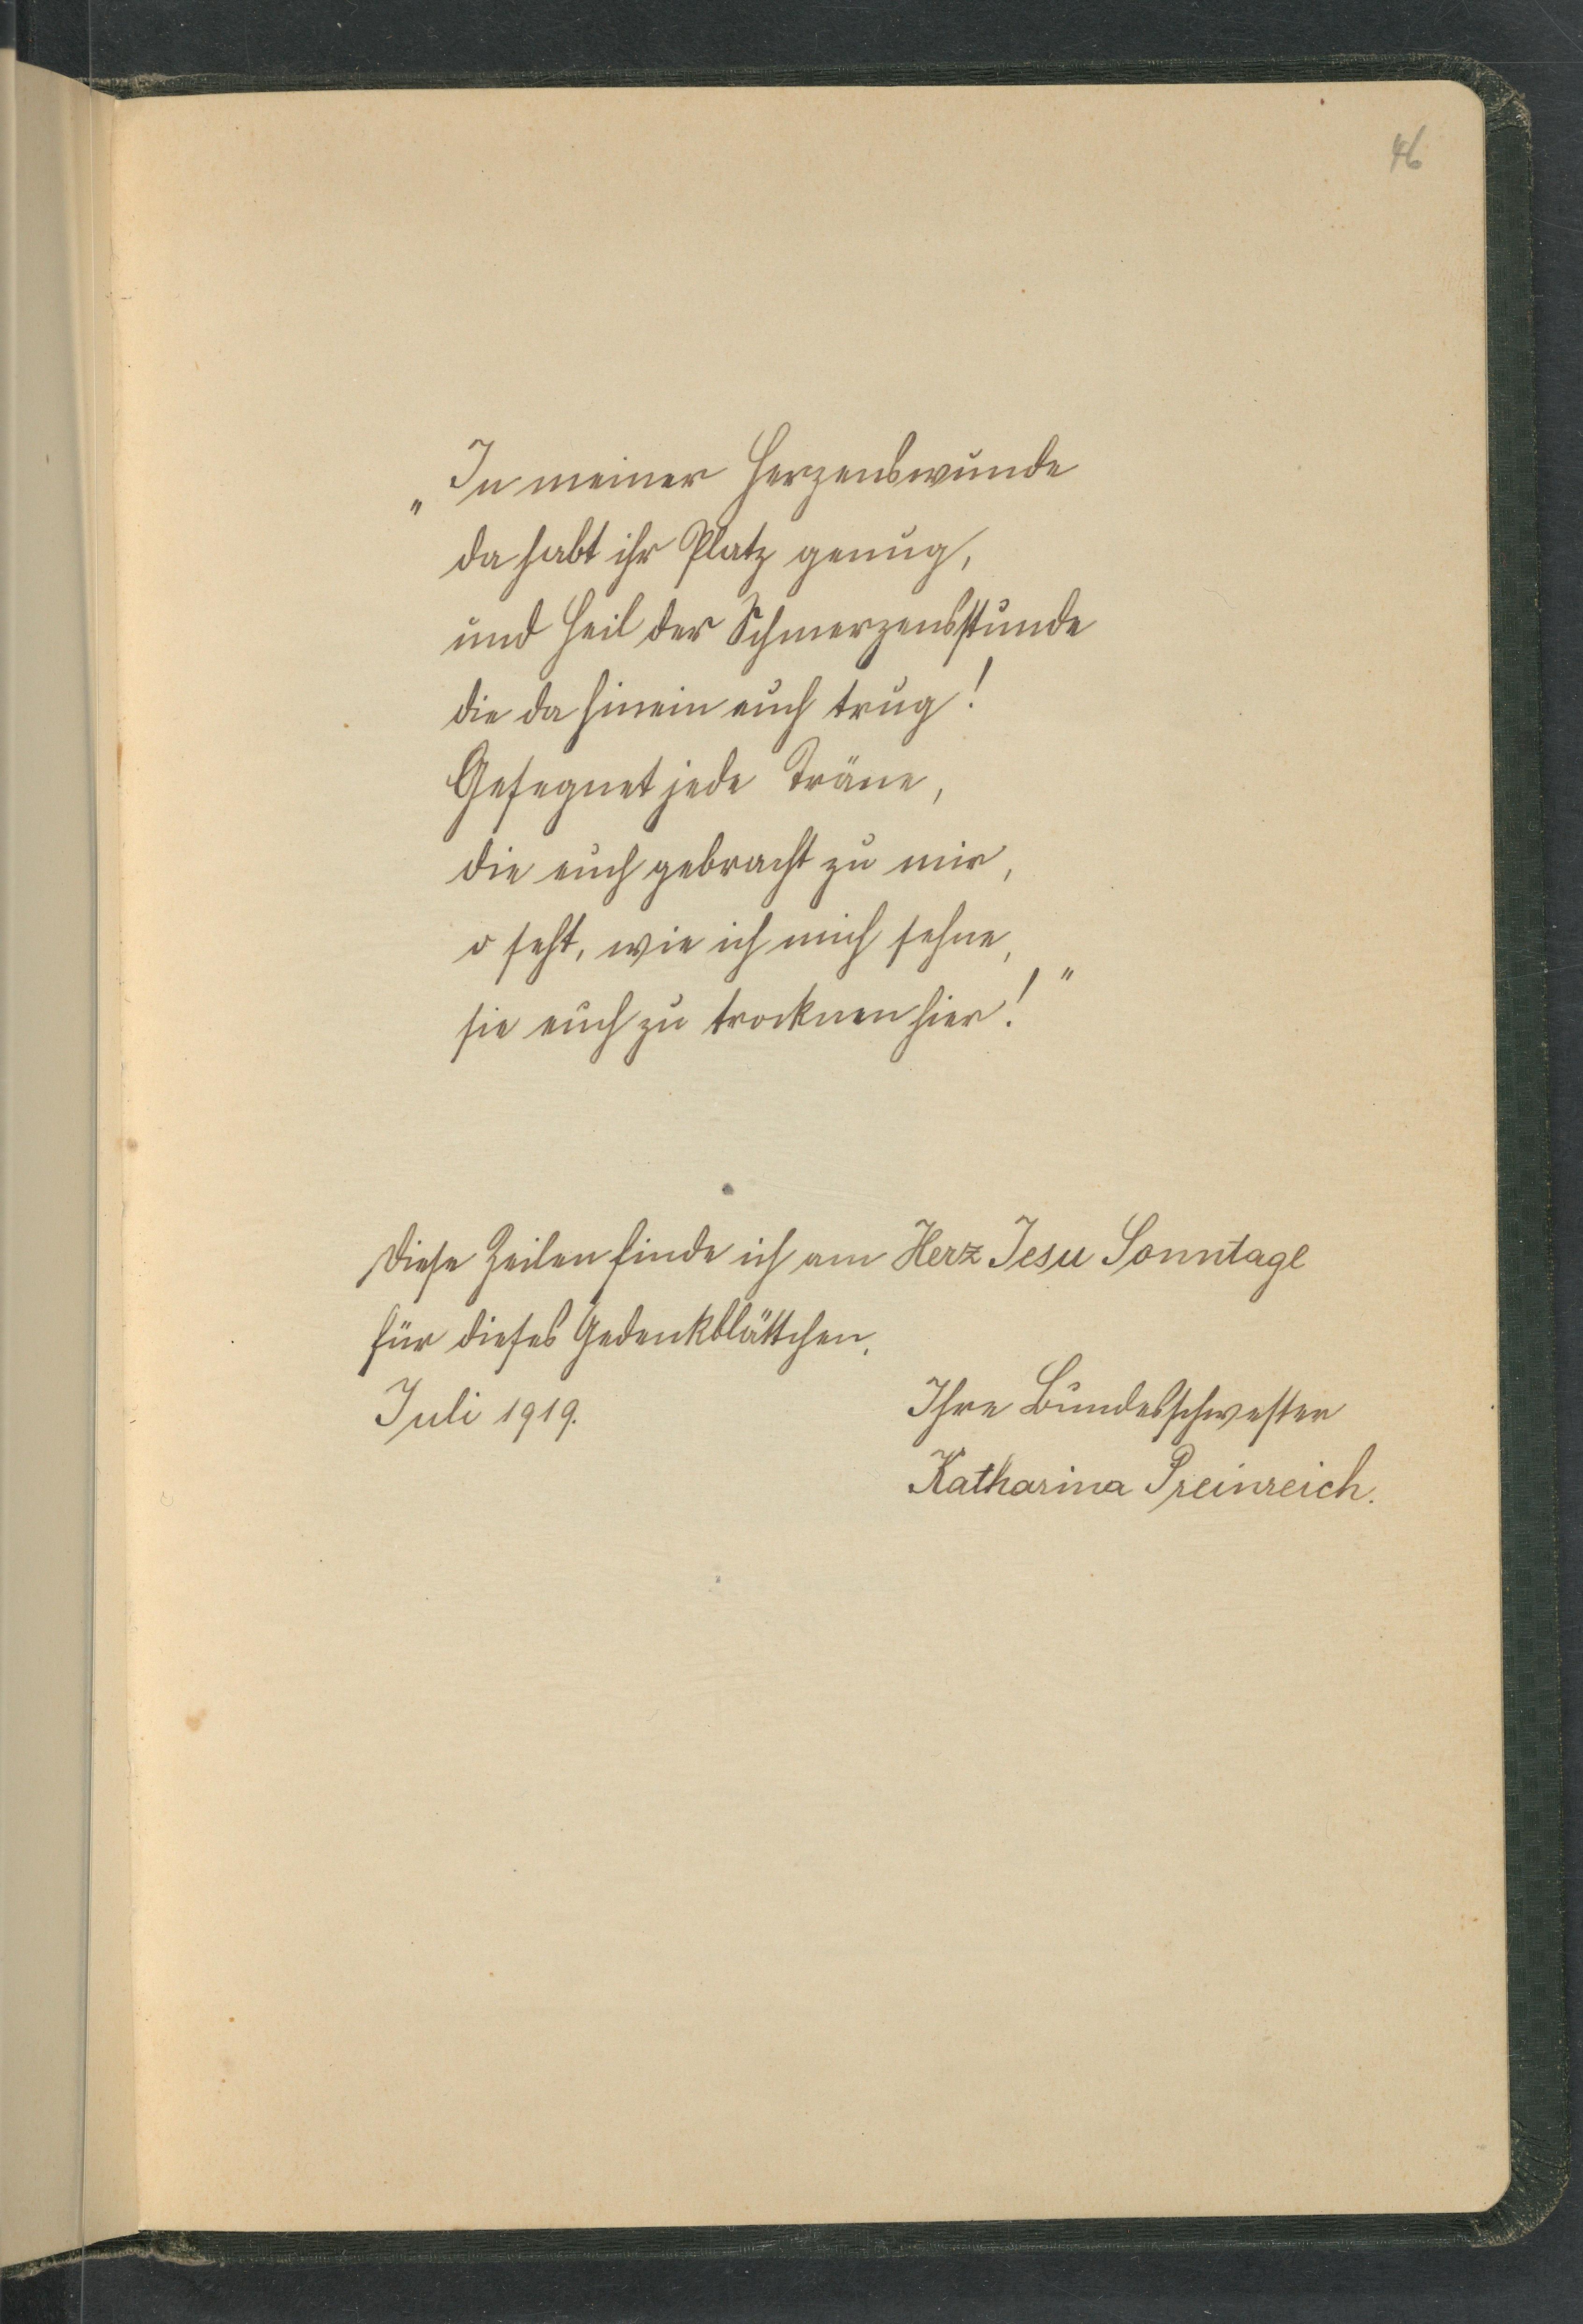 46
„In meiner Herzenswunde
da habt ihr Platz genug,
und Heil der Schmerzensstunde
die da hinein euch trug!
Gesegnet jede Träne,
die euch gebracht zu mir,
o seht, wie ich mich sehne,
sie euch zu trocknen hier!"
Diese Zeilen finde ich am Herz Jesu Sonntage
für dieses Gedenkblättchen.
Juli 1919.
Ihre Bundesschwester
Katharina Preinreich.